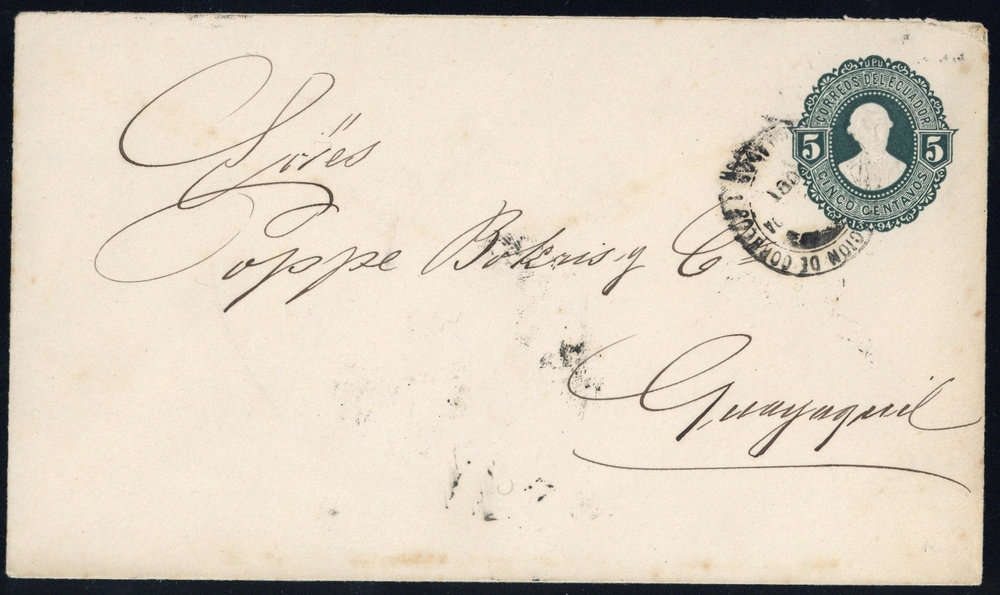 UPU
CORREOS DEL ECUADOR
5 5
CINCO CENTAVOS
1894
CION DE CORREOS
Sres
Poppe y Cª
Guayaquil